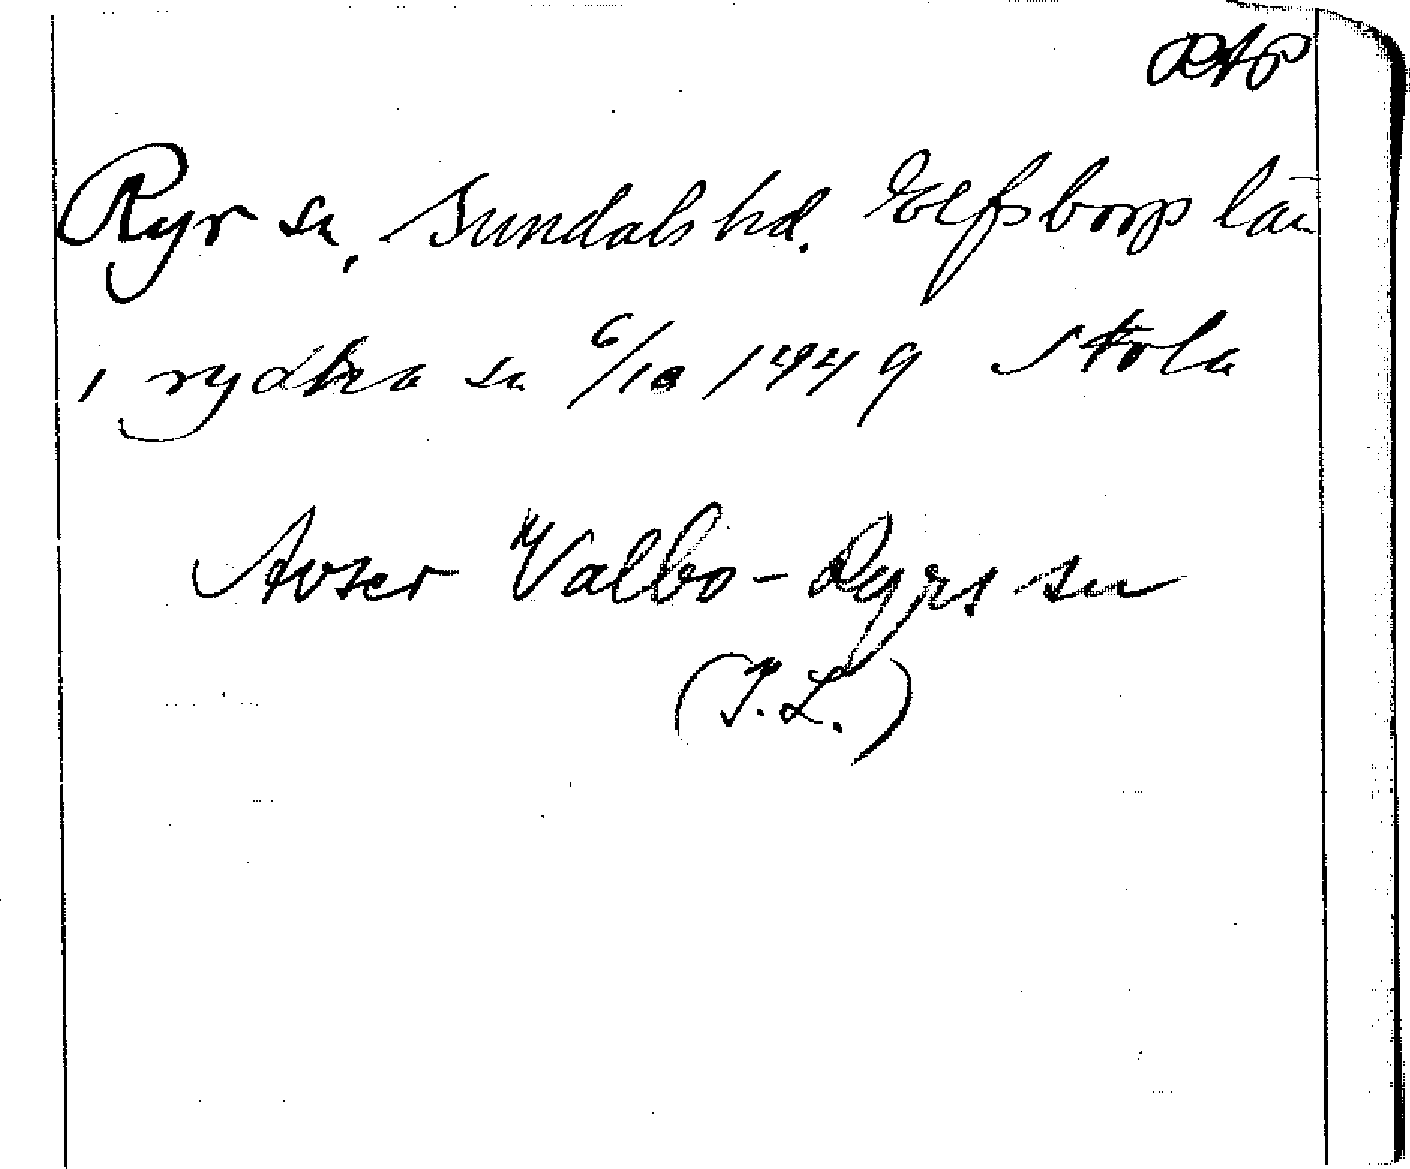 RAp
Ryr sn, Sundals hd. Elfsborgs län
i rydhra sn 6/10 1449 Skola
Avser Valbo-Ryrs sn
(I.L.)